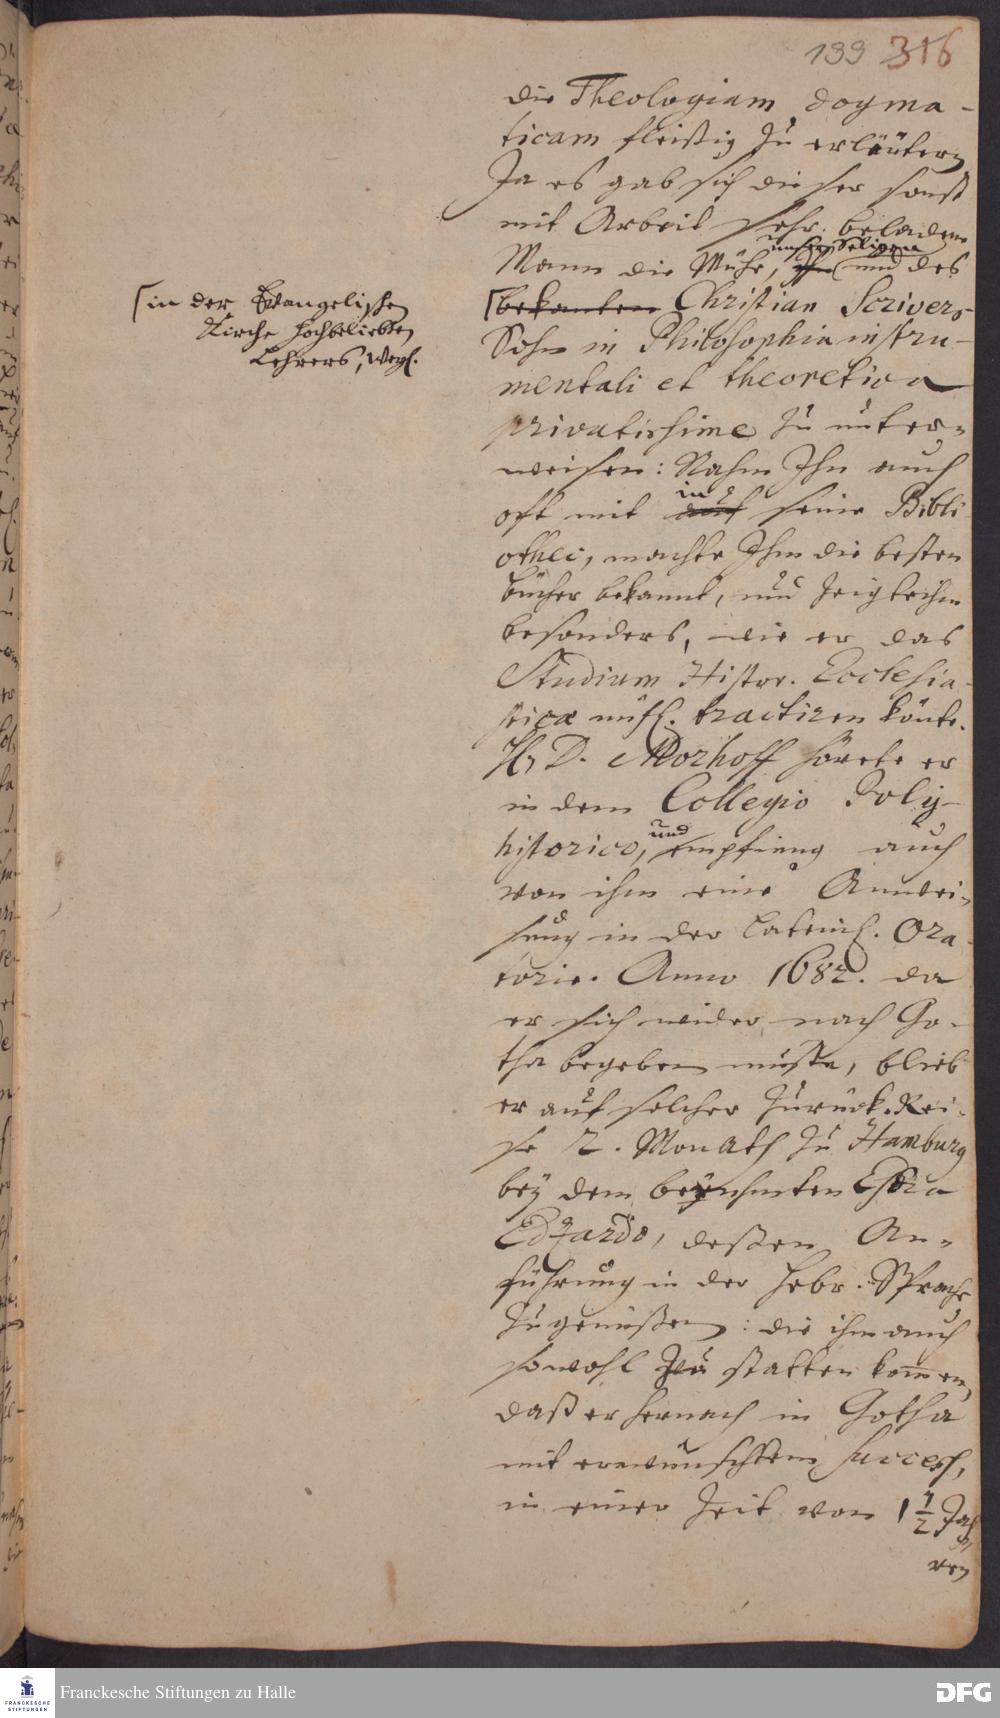 199 316
die Theologiam dogma-
ticam fleißig zu erläutern
Ja es gab sich dieser sonst
mit Arbeit sehr beladene
unsern Seligen
Mann die Mühe, Ihn und des
[bekanten Christian Scrivers
[in der Evangelischen
Kirche hochbeliebten
Lehrers, weyl.
Sohn in Philosophia instru-
mentali et theoretica
privatissime zu unter-
weisen: Nahm Ihn auch
in
oft mit auf seine Bibli
othec, machte Ihm die besten
Bücher bekannt, und zeigte ihm
besonders, wie er das
Studium Histor. Ecclesia-
sticæ nüzl. tractiren könte.
H. D. Morhoff hörete er
in dem Collegio Poly-
und
historico, empfieng auch
von ihm eine Anwei-
sung in der Lateinl. Ora-
torie. Anno 1682. da
er sich wider nach Go-
tha begeben muste, blieb
er auf solcher Zurück-Rei-
se 2. Monath zu Hamburg
bey dem berühmten Esdra
Edzardo, deßen An-
führung in der Hebr. Sprache
zu genießen: die ihm auch
so wohl zu statten kommen,
daß er hernach in Gotha
mit erwünschtem Success,
in einer Zeit von 1 1/2 Jah
ren
Franckesche Stiftungen zu Halle
FRANCKESCHE
STIFTUNGEN
DFG